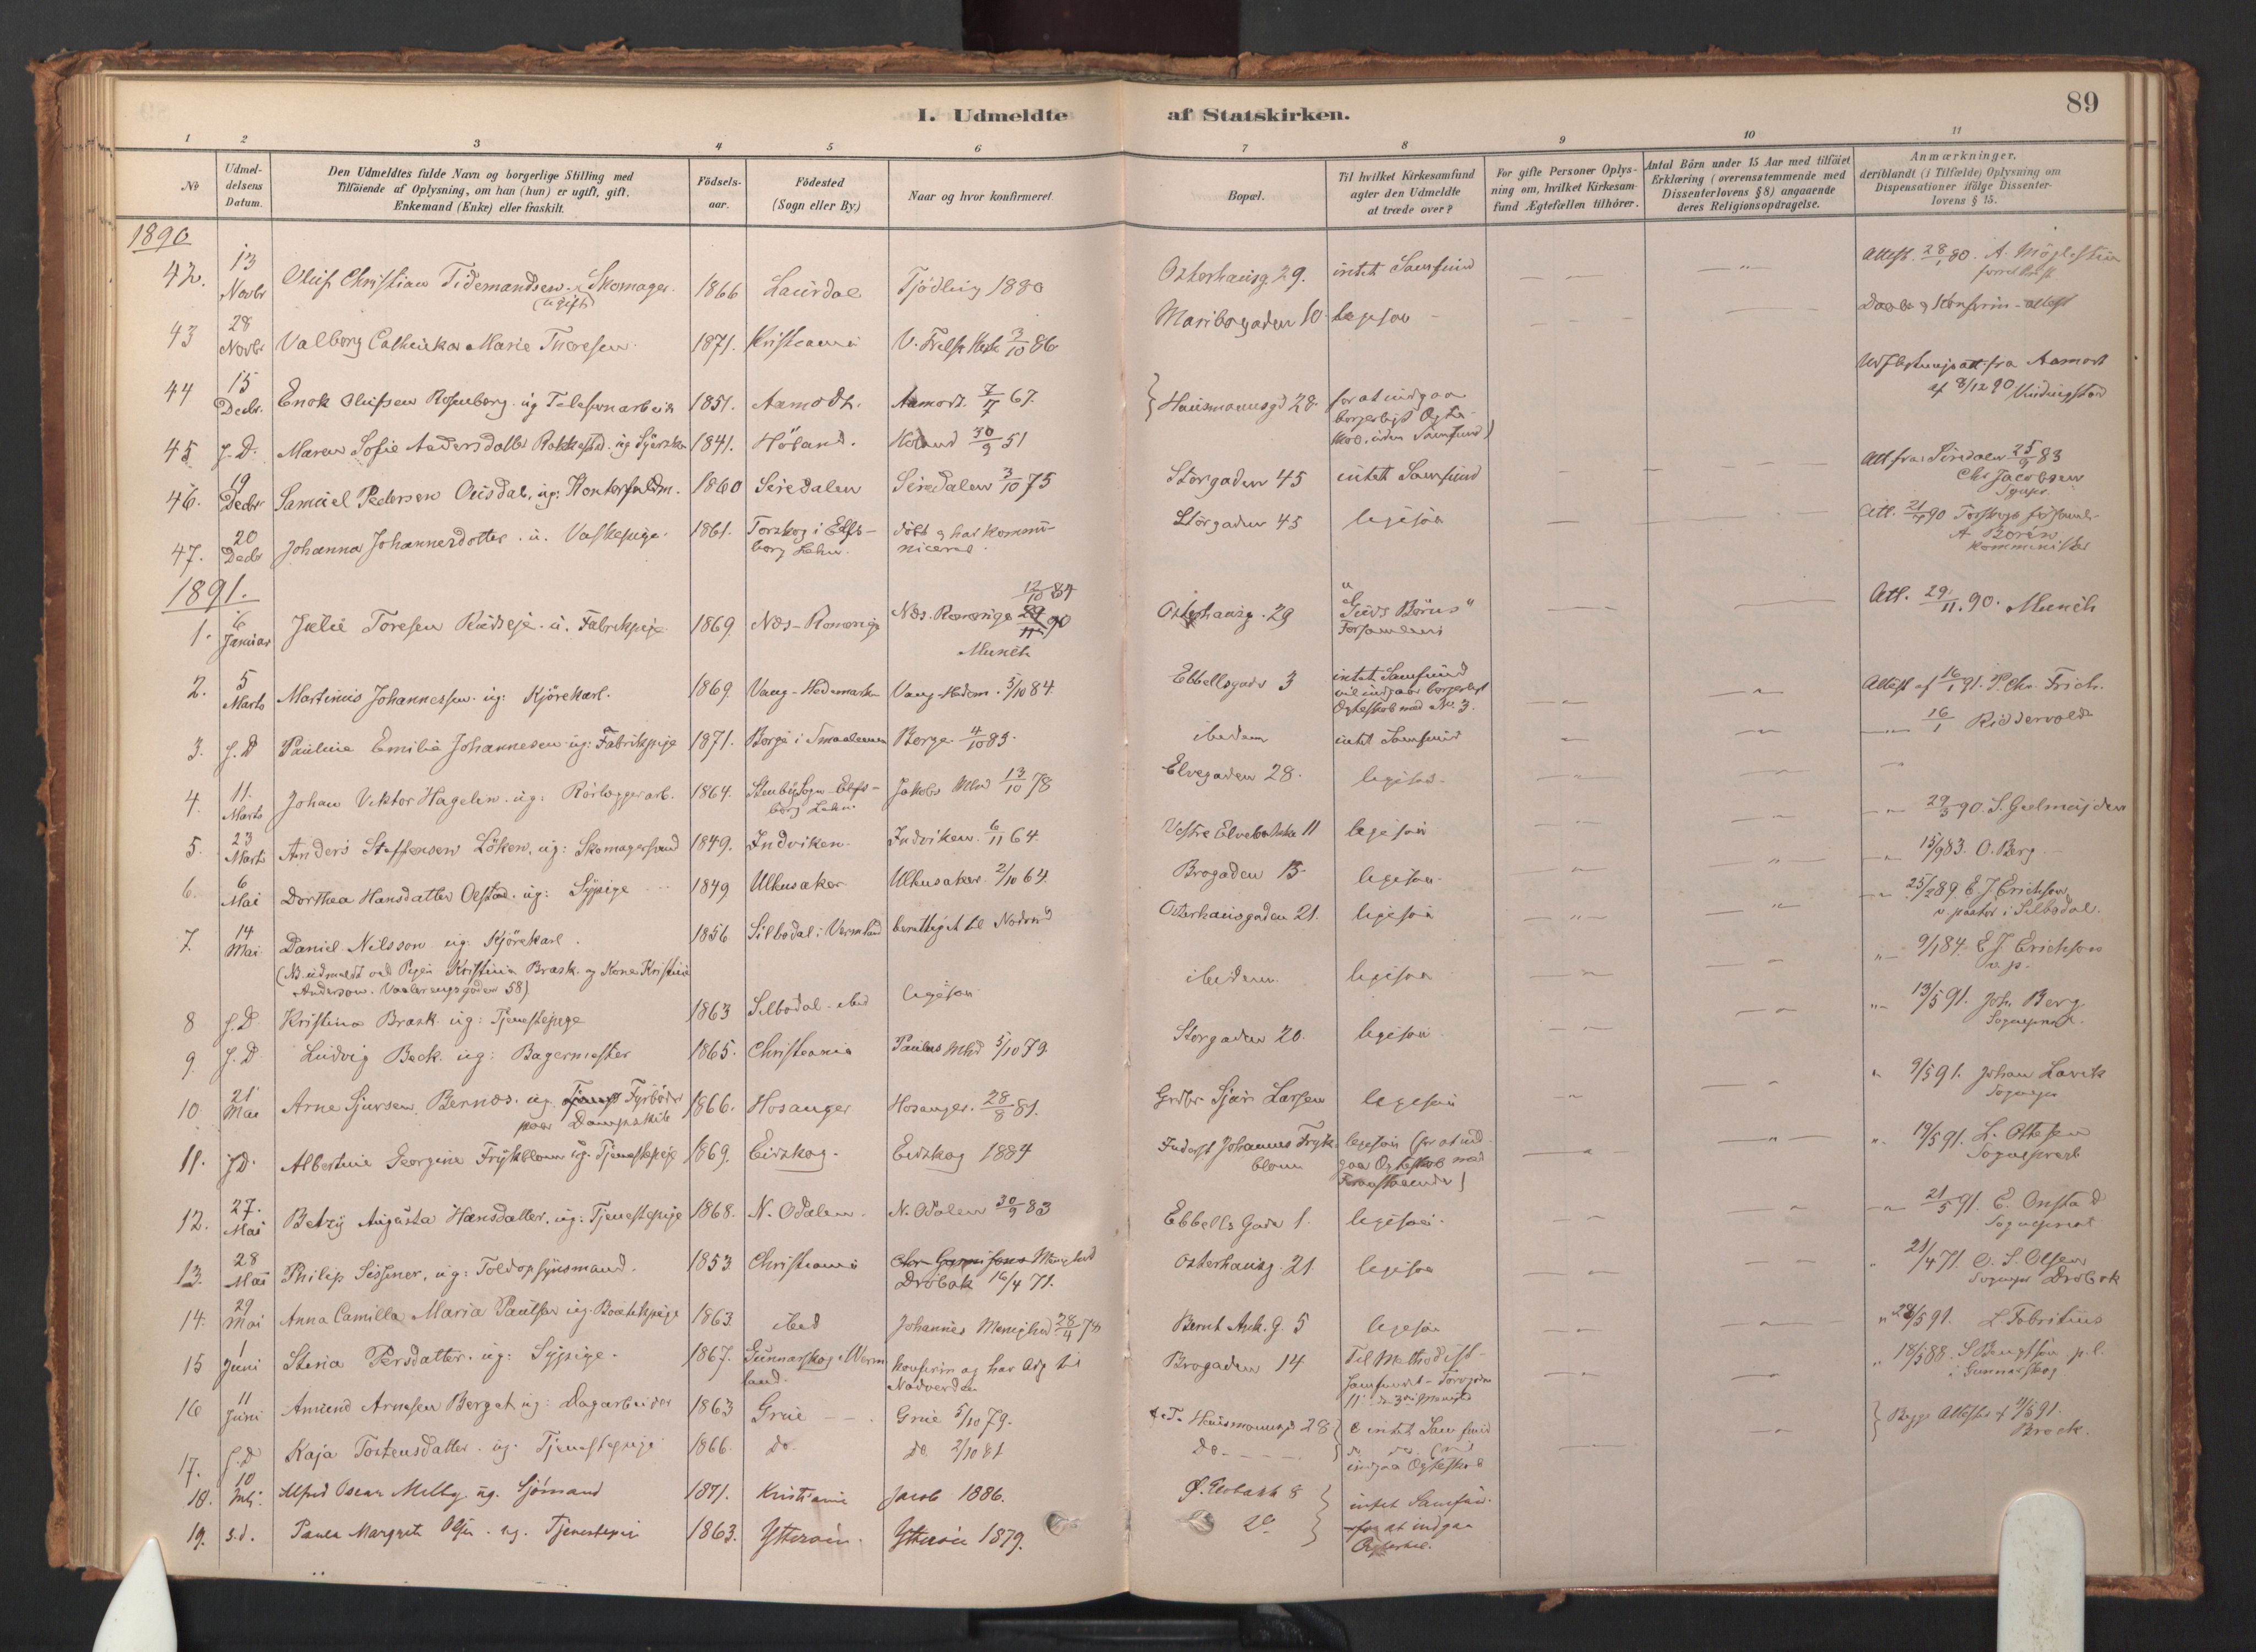 I. Udmeldte af Statskirken. 89
1 2 3 4 5 6 7 8 9 10 11
No
Udmel-
delsens
Datum.
Den Udmeldtes fulde Navn og borgerlige Stilling med
Tilföiende af Oplysning, om han (hun) er ugift, gift,
Enkemand (Enke) eller fraskilt.
Födsels-
aar.
Födested
(Sogn eller By.)
Naar og hvor konfirmeret.
Bopæl.
Til hvilket Kirkesamfund
agter den Udmeldte
at træde over?
For gifte Personer Oplys-
ning om, hvilket Kirkesam-
fund Ægtefællen tilhörer.
Antal Börn under 15 Aar med tilföiet
Erklæring (overensstemmende med
Dissenterlovens § 8) angaaende
deres Religionsopdragelse.
Anmærkninger,
deriblandt (i Tilfælde) Oplysning om
Dispensationer ifölge Dissenter-
lovens § 15.
1890
42. 13 Novbr Oluf Christian Tidemandsen Skomager. (ugift) 1866 Laurdal Tjödling 1880 Osterhausg. 29. intet Samfund Attest. 28/1 80.
43 28 Novbr Valborg Cathinka Marie Thoresen. 1871. Kristiania V. Frelsr Kirke 3/10 86 Maribogaden 10 ligesaa Daabs og Konfirm-attest
44 15 Decbr. Enok Olufsen Rosenborg. ug Telefonarbeider 1851. Aamodt. Aamodt. 7/7 67. Hausmannsgd 28. for at indgaa
borgerligt Ægte-
skab, uden Samfund)
fra Aamodt
af 8/12 90
45 J. D. Maren Sofie Andersdatter Rakkestad. ug Syerske 1841. Höland. Höland 30/9 51
46. 19 Decbr Samuel Pedersen Ousdal, ug: Kontorfuldm. 1860 Siredalen Siredalen 3/10 75 Storgaden 45 intet Samfund Att fra Siredalen 25/9 83
Chr Jacobsen
Sognepr.
47. 20 Decbr Johanna Johannesdotter. u. Vaskepige. 1861. Torskog i Elfs-
borg Lehn. döbt og har kommu-
niceret. Storgaden 45 ligesaa Att. 21/ 90 Torskogs
A Borén
Komminister
1891.
1. 6 Januar Julie Toresen Rudseje. u. Fabrikpige 1869. Næs-Romerige Næs. Romerige 12/10 84
29/11 90
Munch
Osterhausg. 29 "Guds Börns"
Forsamling
Att. 29/11. 90. Munch
2. 5 Marts Martinus Johannessen. ug: Kjörekarl. 1869. Vang-Hedemarken Vang-Hedem. 5/10 84. Ebbellsgade 3 intet Samfund
vil indgaa borgerligt
Ægteskab med No. 3.
Attest af 16/1 91. P. Chr. Frich.
3. J. D Pauline Emilie Johannesen ug: Fabrikpige 1871. Borge i Smaalenene Borge 4/10 85. ibidem intet Samfund 16/1 Riddervold
4. 11. Marts Johan Viktor Hagelin. ug: Rörlæggerarb. 1864. Stenby Sogn-Elfs-
borg Lehn Jakobs Mhd 13/10 78 Elvegaden 28. ligesaa.
5. 23 Marts Anders Steffensen Löken, ug: Skomagersvend 1849. Indviken. Indviken. 6/11 64 Vestre Elvebakke 11 ligesaa 29/3 90. S. Gelmuyden
6. 6 Mai Dorthea Hansdatter Oestad. ug: Sypige 1849 Ulhusaker Ulhusaker 2/10 64. Brogaden 15. ligesaa. 15/9 83. O. Berg
7. 14 Mai Daniel Nilsson ug: Kjörekarl.
(No. udmeldt ved Pigen Kristina Brask og Kone Kristine
Anderson. Vaalerengsgaden 58)
1856 Silbodal i Vermland berettiget til Nadverd Osterhausgaden 21. ligesaa 25/2 89 E. J. Erichson
v pastor i Silbodal.
8 J. D. Kristina Brask. ug: Tjenestepige 1863 Silbodal. ibid ligesaa ibidem. ligesaa 9/1 84. E J. Erichson
v. p.
9. J. D. Ludvig Beck. ug: Bagermester 1865. Christiania Paulus Mhd 5/10 79. Storgaden 20. ligesaa. 13/5 91. Joh. Berg
Sogneprest.
10. 21 Mai Arne Sjursen Bernæs. ug. Fyrböder
paa Dampskib
1866. Hosanger Hosanger. 28/8 81. Grdbr Sjur Larsen ligesaa 9/5 91. Johan Lavik
Sognepr
11. J D. Albertine Georgine Frykblom ug. Tjenestepige 1869. Eidskog. Eidskog 1884 Inderst Johannes Fryk-
blom ligesaa (for at ind
gaa Ægteskab med
Foranstaaende) 19/5 91. L. Ottesen
Sogneprest
12. 27. Mai Betzy Augusta Hansdatter. ug: Tjenestepige 1868. N. Odalen. N. Odalen 30/9 83 Ebbells Gade 1. ligesaa. 21/5 91. E. Onstad
Sogneprest
13. 28 Mai Philip Sissener, ug: Toldopsynsmand. 1853 Christiania Chr Garnisons Menighed
Dröbak 16/4 71. Osterhausg. 21. ligesaa 21/4 71. O. S. Olsen
Sognepr Dröbak
14. 29 Mai Anna Camilla Maria Paulsen ug. Boutikpige 1863. ibid Johannes Menighed 28/4 78 Bernt Ank. g. 5 ligesaa 28/5 91. L Fabritius
15 1 Juni Stina Persdatter. ug: Sypige. 1867. Gunnarskog i Verm
land. konfirm og har Adg til
Nadverden Brogaden 14 Til Methodist-
Samfundet 18/5 88. S Bengtson. p.l.
i Gunnarskog
16 11 Juni Amund Arnesen Berget ug: Dagarbeider 1863 Grue Grue 5/10 79. Hausmannsgd 28 intet Samfund Begge Attester af 9/5 91.
Brock.
17. J. D Kaja Tostensdatter. ug. Tjenestepige 1866. do. do. 2/10 81 do. do. do.
indgaa Ægteskab
18. 10 Juli. Alfred Oscar Melby. ug. Sjömand 1871. Kristiania Jacob 1886. Ø. Elvbakk 8 intet Samfund.
19. s. d. Paula Margrete Olsen. ug. Tjenestepige 1863. Ytteröen. Ytteröen 1879. do for at indgaa
Ægteskab.